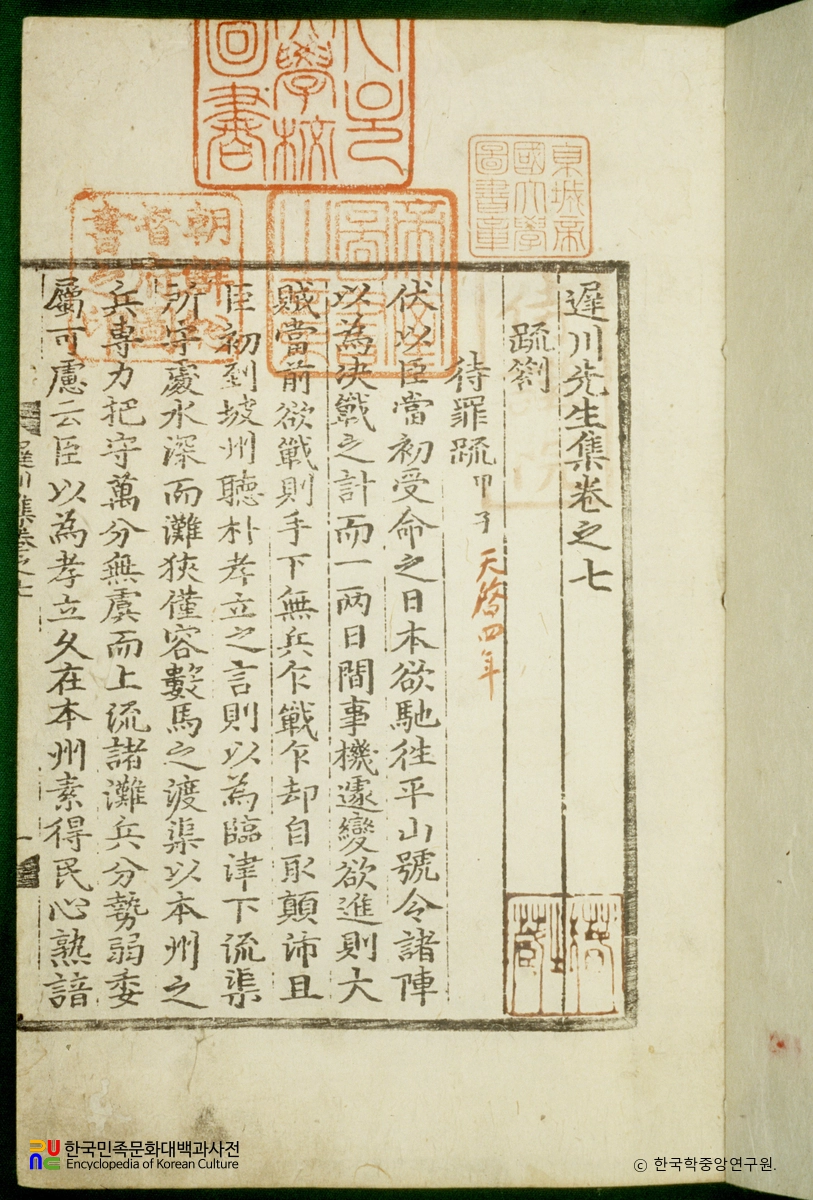 서울
大學校
圖書
京城帝
國大學
圖書章
遲川先生集卷之七
疏劄
待罪疏 甲子 天啓四年
伏以臣當初受命之日本欲馳徃平山號令諸陣
以為决戰之計而一两日間事機遽變欲進則大
賊當前欲戰則手下無兵乍戰乍却自取顚沛且
臣初到坡州聽朴孝立之言則以為臨津下流渠
所守處水深而灘狹僅容數馬之渡渠以本州之
兵專力把守萬分無虞而上流諸灘兵分勢弱委
屬可慮云臣以為孝立久在本州素得民心熟諳
遲川集卷之七
一
한국민족문화대백과사전
Encyclopedia of Korean Culture
ⓒ 한국학중앙연구원.